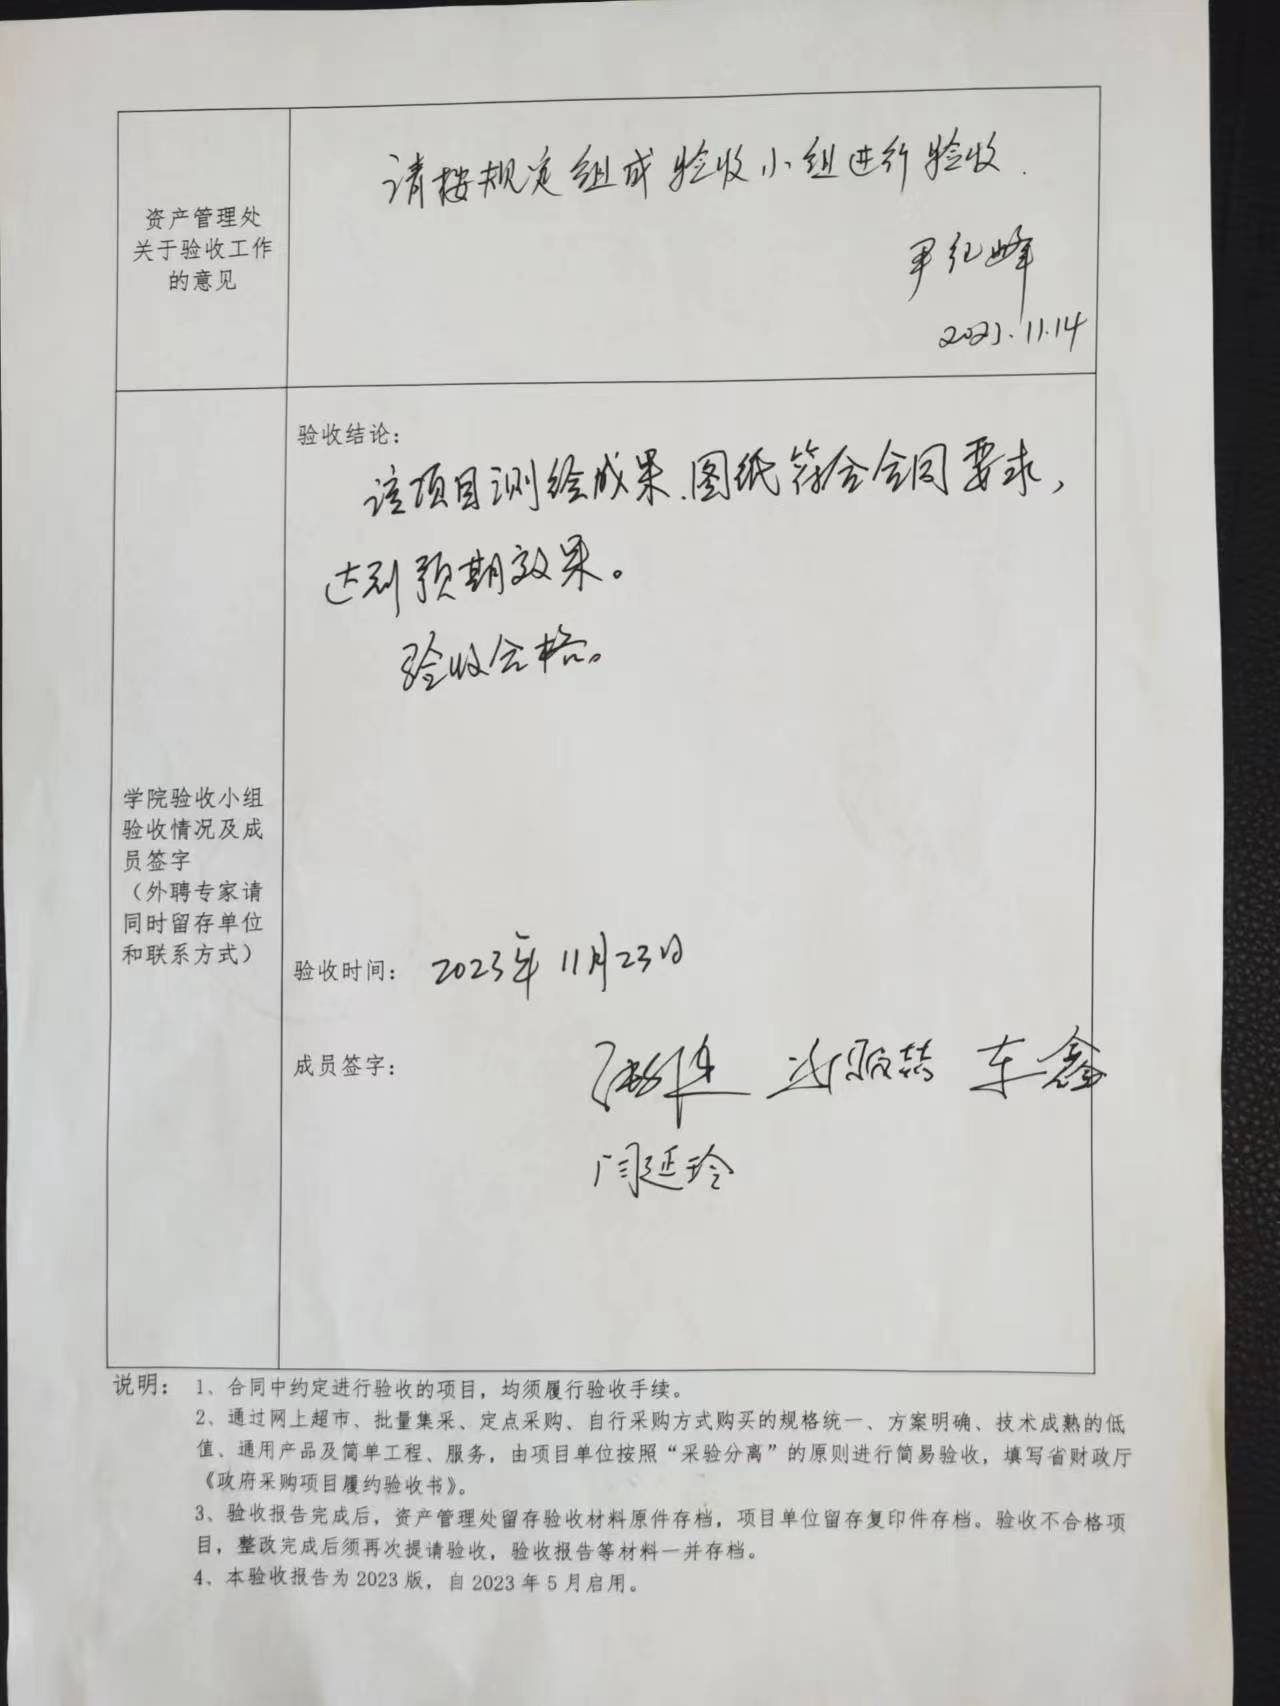 资产管理处
关于验收工作
的意见
请按规定组成验收小组进行验收.
尹红峰
2023.11.14
学院验收小组
验收情况及成
员签字
（外聘专家请
同时留存单位
和联系方式）
验收结论：
该项目测绘成果、图纸符合合同要求，
达到预期效果。
验收合格。
验收时间： 2023年11月23日
成员签字： 车鑫
闫延玲
说明： 1、合同中约定进行验收的项目，均须履行验收手续。
2、通过网上超市、批量集采、定点采购、自行采购方式购买的规格统一、方案明确、技术成熟的低
值、通用产品及简单工程、服务，由项目单位按照“采验分离”的原则进行简易验收，填写省财政厅
《政府采购项目履约验收书》。
3、验收报告完成后，资产管理处留存验收材料原件存档，项目单位留存复印件存档。验收不合格项
目，整改完成后须再次提请验收，验收报告等材料一并存档。
4、本验收报告为2023版，自2023年5月启用。